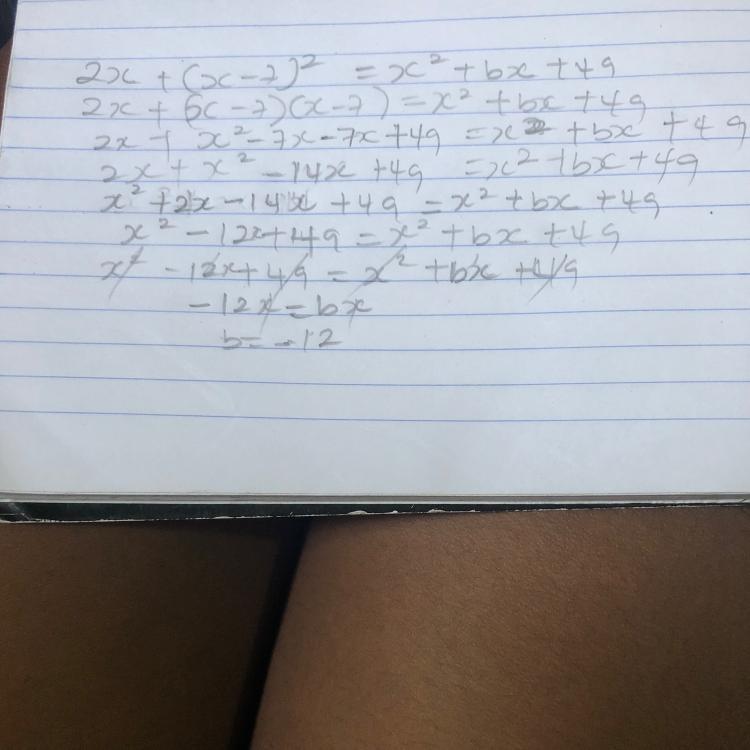 2x + (x-7)² = x² + bx + 49
2x + (x-7)(x-7) = x² + bx + 49
2x + x² - 7x - 7x + 49 = x² + bx + 49
2x + x² - 14x + 49 = x² + bx + 49
x² + 2x - 14x + 49 = x² + bx + 49
x² - 12x + 49 = x² + bx + 49
x² - 12x + 49 = x² + bx + 49
-12x = bx
b = -12